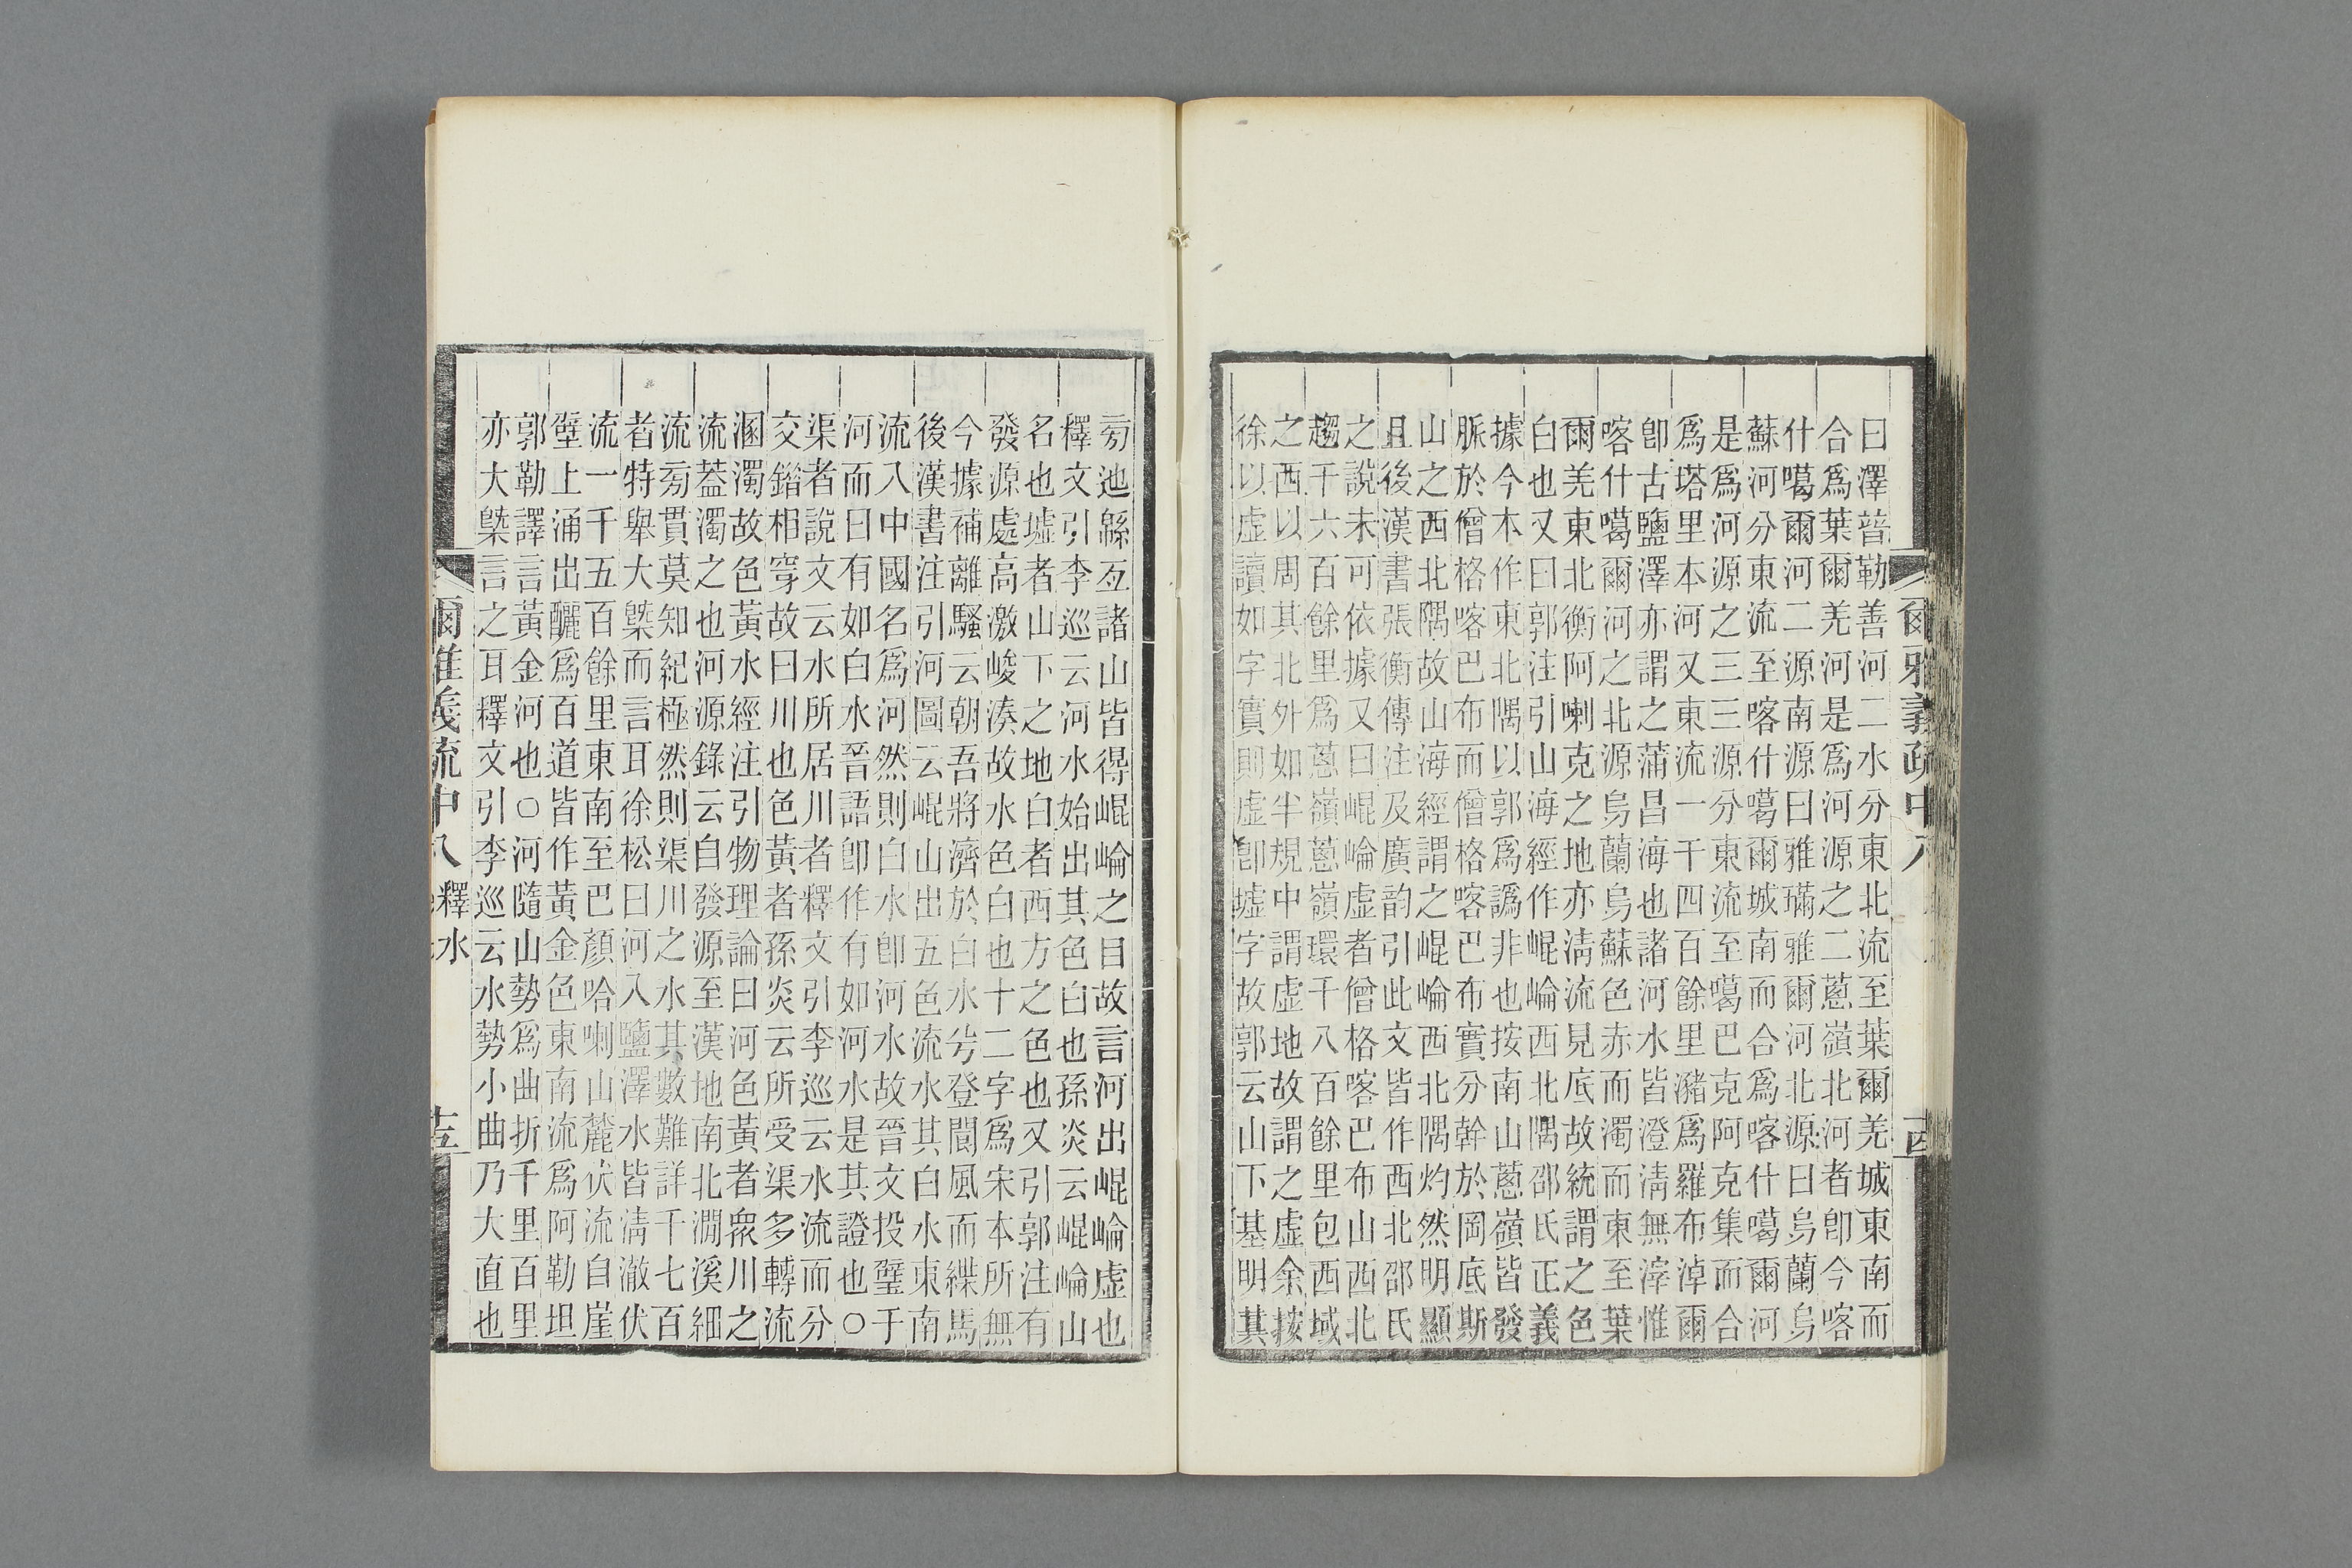 曰澤普勒善河二水分東北流至葉爾羌城東南而
合爲葉爾羌河是爲河源之二蔥嶺北河者卽今喀
什噶爾河二源南源曰雅璊雅爾河北源曰烏蘭烏
蘇河分東流至喀什噶爾城南而合爲喀什噶爾河
是爲河源之三三源分東流至噶巴克阿克集而合
爲塔里本河又東流一千四百餘里瀦爲羅布淖爾
卽古鹽澤亦謂之蒲昌海也諸河水皆澄淸無滓惟
喀什噶爾河之北源烏蘭烏蘇色赤而濁而東至葉
爾羌東北衡阿喇克之地亦淸流見底故統謂之色
白也又曰郭注引山海經作崐崘西北隅邵氏正義
據今本作東北隅以郭爲譌非也按南山蔥嶺皆發
脈於僧格喀巴布而僧格喀巴布實分幹於岡底斯
山之西北隅故山海經謂之崐崘西北隅灼然明顯
且後漢書張衡傳注及廣韵引此文皆作西北邵氏
之說未可依據又曰崐崘虛者僧格喀巴布山西北
趨千六百餘里爲蔥嶺蔥嶺環千八百餘里包西域
之西以周其北外如半規中謂虛地故謂之虛余按
徐以虛讀如字實則虛卽墟字故郭云山下基明其
爾雅義疏中八
旁迆緜亙諸山皆得崐崘之目故言河出崐崘虛也
釋文引李巡云河水始出其色白也孫炎云崐崘山
名也墟者山下之地白者西方之色也又引郭注有
發源處高激峻湊故水色白也十二字爲宋本所無
今據補離騷云朝吾將濟於白水兮登閬風而緤馬
後漢書注引河圖云崐山出五色流水其白水東南
流入中國名爲河然則白水卽河水故晉文投璧于
河而曰有如白水晉語卽作有如河水是其證也〇
渠者說文云水所居川者釋文引李巡云水流而分
交錯相穿故曰川也色黃者孫炎云所受渠多轉流
溷濁故色黃水經注引物理論曰河色黃者衆川之
流蓋濁之也河源錄云自發源至漢地南北澗溪細
流旁貫莫知紀極然則渠川之水其數難詳千七百
者特舉大槩而言耳徐松曰河入鹽澤水皆淸澈伏
流一千五百餘里東南至巴顏哈喇山麓伏流自崖
壁上涌出釃爲百道皆作黃金色東南流爲阿勒坦
郭勒譯言黃金河也〇河隨山勢爲曲折千里百里
亦大槩言之耳釋文引李巡云水勢小曲乃大直也
爾雅義疏中八 釋水 十五